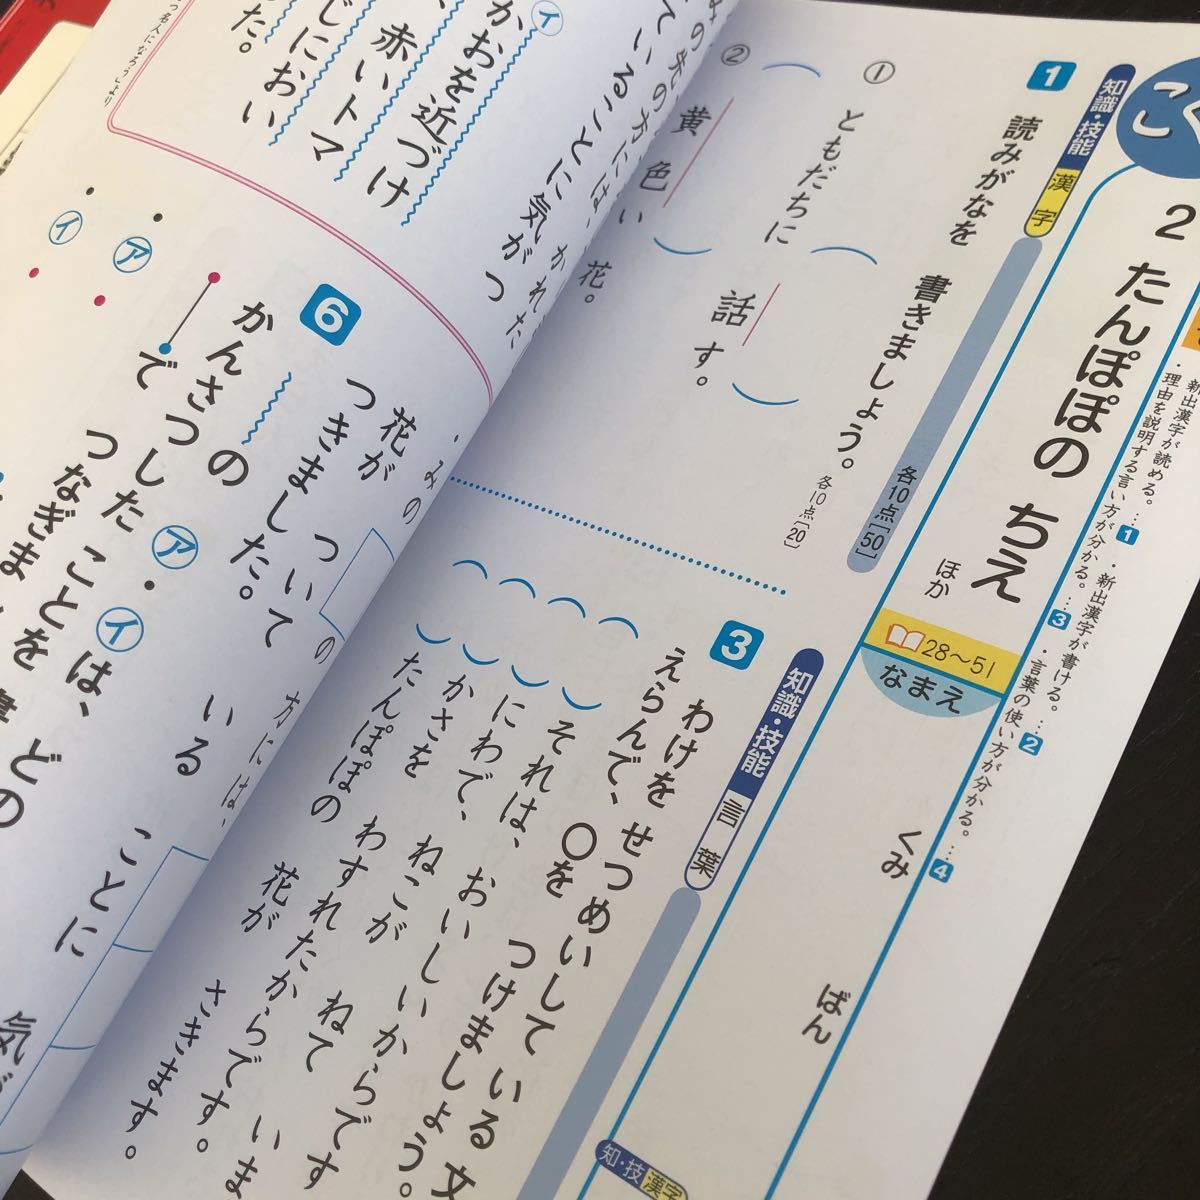 こく
2 たんぽぽの ちえ
ほか
28～51
なまえ
くみ
ばん
・新出漢字が読める。…1
・新出漢字が書ける。…2
・理由を説明する言い方が分かる。…3
・言葉の使い方が分かる。…4
1
知識・技能
漢字
各10点[50]
読みがなを 書きましょう。
各10点[20]
① ともだちに 話す。
② 黄色い 花。
3
知識・技能
言葉
わけを せつめいして いる文
えらんで、○を つけましょう。
それは、おいしいからです
にわで、ねこが ねて いま
かさを わすれたからです。
たんぽぽの 花が さきます。
知・技
漢字
の先の方には、かれた
ていることに気がつ
イ
かおを近づけ
赤いトマ
じにおい
た。
名人になろう」より
6
花が ついて いる ことに 気が
つきました。
かんさつの
かんさつした ことを
ア・イは、どの
で つなぎま
ア
イ
の 方には、